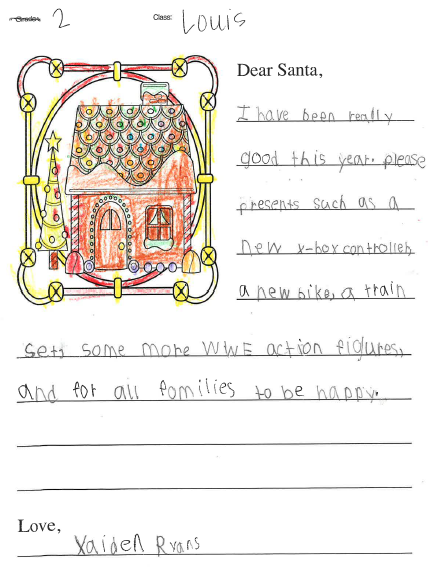 Grade: 2 Class: Louis
Dear Santa,
I have been really
good this year. please
presents such as a
new x-box controller,
a new bike, a train
sets some more WWE action figures,
and for all families to be happy.
Love,
Xaiden Rvans